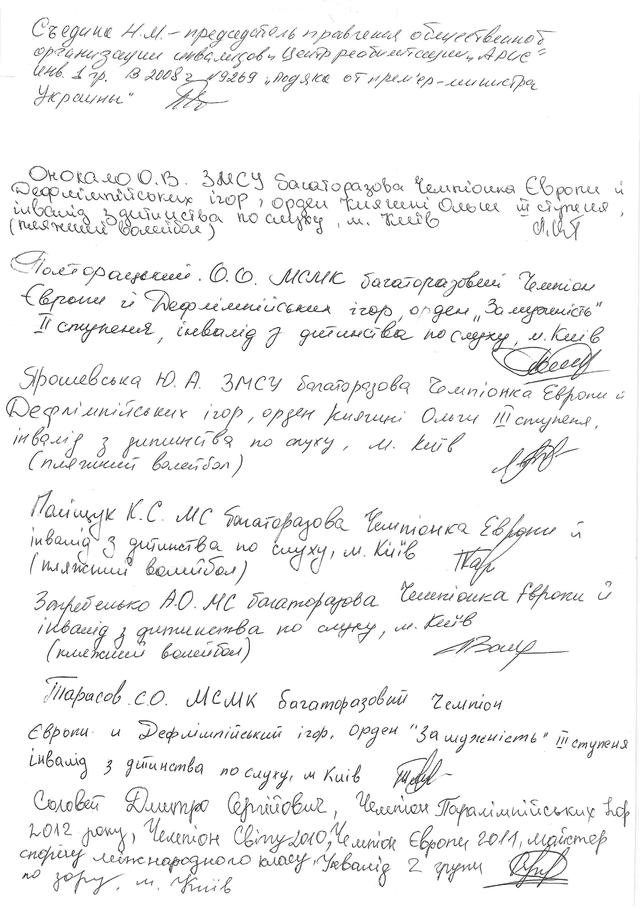 Съедина Н.М. - председатель правления общественной
организации инвалидов „Центр реабилитации „АРИС"
инв. 1 гр. В 2008 г №9269 „подяка от прем'ер-министра
Украины"
Онокало О.В. ЗМСУ багаторазова Чемпіонка Європи й
Дефлімпійських ігор, орден Княгині Ольги III ступеня,
інвалід з дитинства по слуху, м. Київ
(пляжний волейбол)
Полторацький. О.О. МСМК багаторазовий Чемпіон
Європи й Дефлімпійських ігор, орден „За мужність"
II ступеня, інвалід з дитинства по слуху, м. Київ
Ярошевська Ю.А. ЗМСУ багаторазова Чемпіонка Європи й
Дефлімпійських ігор, орден Княгині Ольги III ступеня,
інвалід з дитинства по слуху, м. Київ
(пляжний волейбол)
К.С. МС багаторазова Чемпіонка Европи й
інвалід з дитинства по слуху, м. Київ
(пляжний волейбол)
А.О. МС багаторазова Чемпіонка Європи й
інвалід з дитинства по слуху, м. Київ
(пляжний волейбол)
Тарасов. С.О. МСМК багаторазовий Чемпіон
Європи и Дефлімпійський ігор, орден "За мужність" III ступеня
інвалід з дитинства по слуху, м Київ
Соловей Дмитро Сергійович, Чемпіон Паралімпійських Ігор
2012 року, Чемпіон Світу 2010, Чемпіон Європи 2011, майстер
спорту міжнародного класу, Інвалід 2 групи
по зору, м. Київ